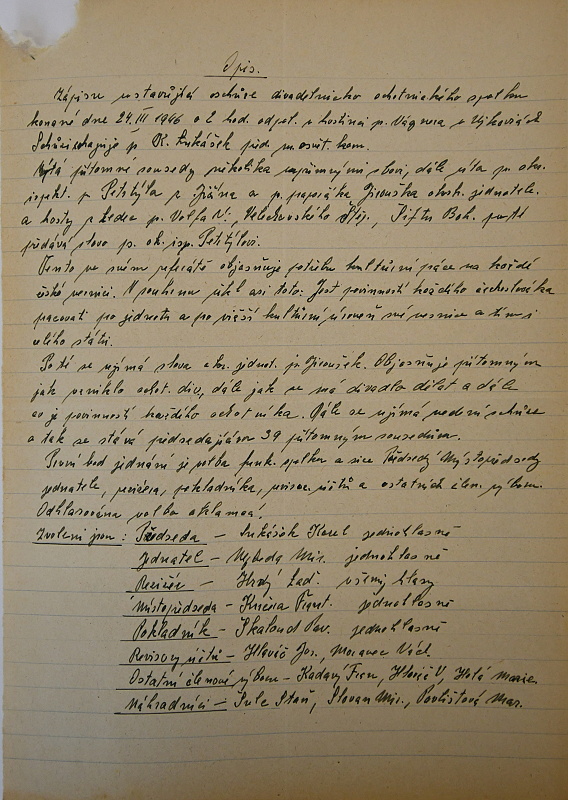 Opis.
Zápis ustavující schůze divadelního ochotnického spolku
konané dne 24. III 1946 o 2. hod. odpol. v hostinci p. Vágnera v
Schůzi zahajuje p. K. Lukášek před. m. osvět. kom.
Vítá přítomné sousedy několika upřímnými slovy, dále vítá p. okr.
inspekt. p. Petrtýla z Jičína a p. Jirouška okrsk. jednatele.
a hosty z p. Volfa V., Šift Boh. poté
předává slovo p. ok. insp. Petrtýlovi.
Tento ve svém referátě objasňuje potřebu kulturní práce na každé
české vesnici. V souhrnu řekl asi toto: Jest povinností každého čechoslováka
pracovati pro jednotu a pro vyšší kulturní úroveň své vesnice a tím i
celého státu.
Poté se ujímá slova okr. jednat. p. Jiroušek. Objasňuje přítomným
jak vzniklo ochot. div., dále jak se má divadlo dělat a dále
co je povinností každého ochotníka. Dále se ujímá vedení schůze
a tak se stává předsedajícím 39 přítomným sousedům.
První bod jednání je volba funk. spolku a sice Předsedy Místopředsedy
jednatele, režiséra, pokladníka, revisor. účtů a ostatních člen. výboru.
Odhlasována volba aklamací.
Zvoleni jsou: Předseda – Lukášek Karel jednohlasně
Jednatel – Mir. jednohlasně
Režisér – Hrdý Lad. všemi hlasy
Místopředseda – Kučera Frant. jednohlasně
Pokladník – Skaloud Jar. jednohlasně
Revisory účtů – Hlaváč Jos., Moravec Václ.
Ostatní členové výboru – Kadavý Fran., V., Holá Marie
Náhradníci – Sule Stan., Slovan Mir., Mar.